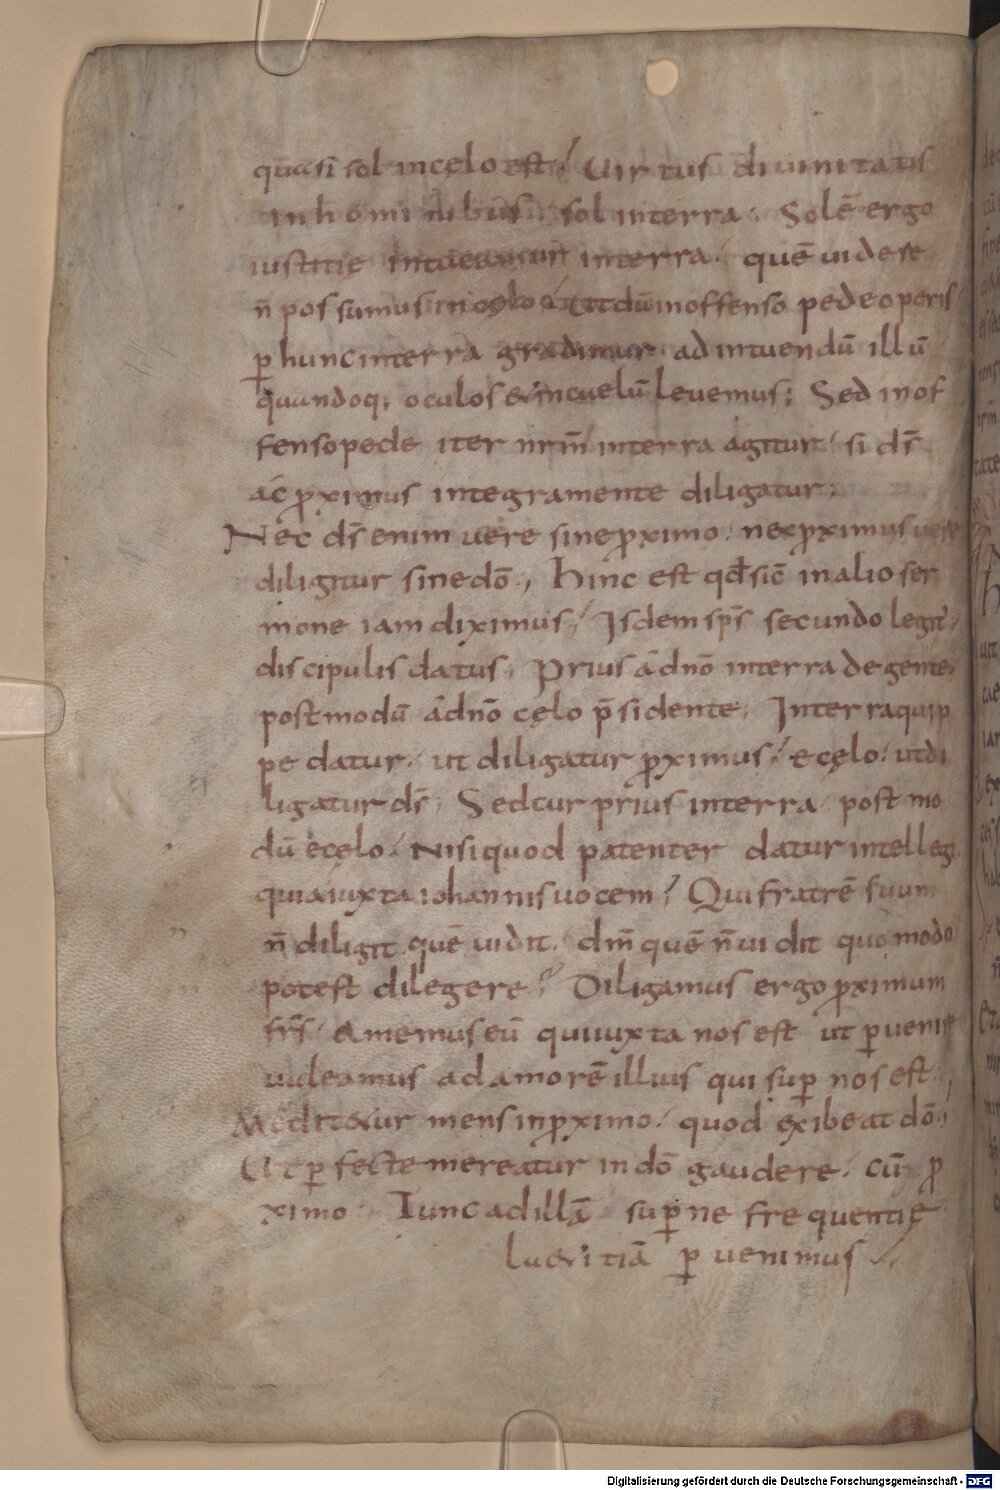 quasi sol incęlo est? Uirtus diuinitatis
inhominibus. sol interra. Solē ergo
iustitię intueamur interra. quē uidere
n̄ possumus incęlo. Et dū inoffenso pede operis
ꝑ hunc interra gradimur. ad intuendū illū
quandoq; oculos & incaelū leuemus; Sed inof
fenso pede iter nr̄m interra agitur. si d̄s
ac ꝓximus integra mente diligatur;
Nec d̄s enim uere sine ꝓximo. nec ꝓximus uere
diligitur sine dō; Hinc est qđ sic̄ in alio ser
mone iam diximus; Isdem sp̄s secundo legit̄
discipulis datus; Prius a dn̄o interra degente.
postmodū a dn̄o cęlo p̄sidente; Interra quip
pe datur. ut diligatur ꝓximus; e cęlo. ut di
ligatur d̄s; Sed cur prius interra. postmo
dū e cęlo. Nisi quod patenter datur intellegi.
quia iuxta iohannis uocem? Qui fratrē suum
n̄ diligit quē uidit. dm̄ quē n̄ uidit quomodo
potest dilegere? Diligamus ergo ꝓximum
fr̄s. Amemus eū qui iuxta nos est ut ꝑuenire
ualeamus ad amorē illius qui suꝑ nos est.
Medit&ur mens in ꝓximo. quod exibeat dō.
Ut ꝑfecte mereatur in dō gaudere. cū ꝓ
ximo. Tunc ad illā suꝑne frequentię
l&itiā ꝑuenimus